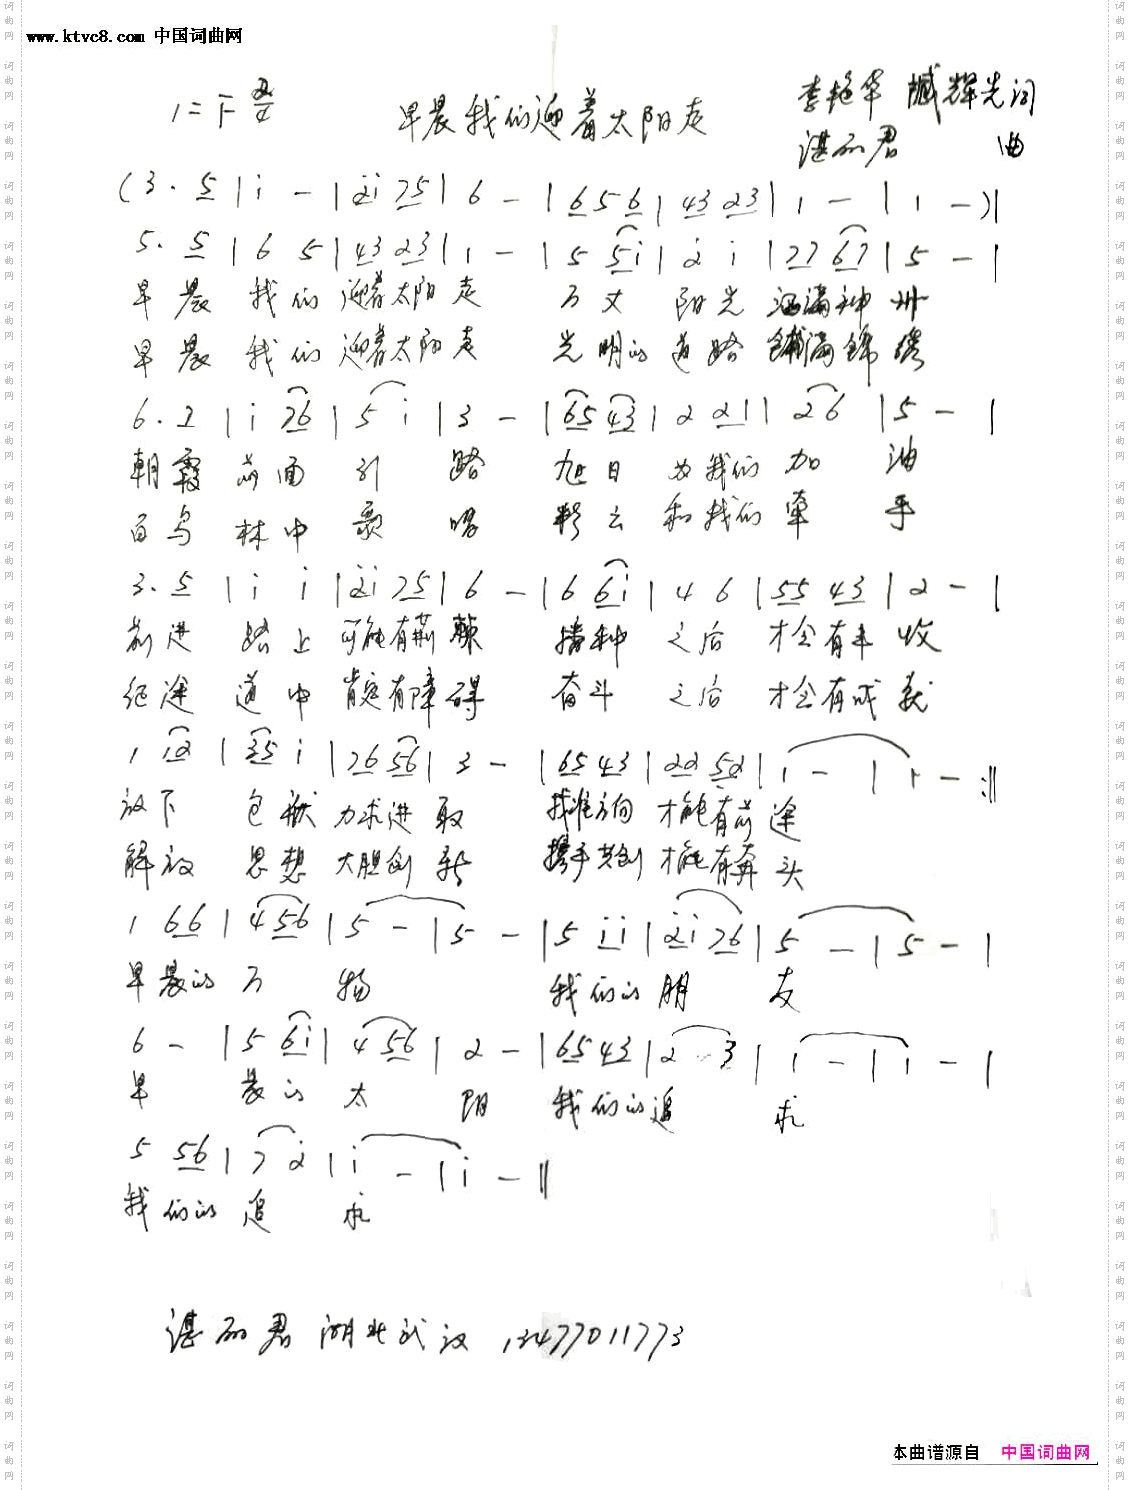 www.ktvc8.com 中国词曲网
1=F 2/4 早晨我们迎着太阳走 李艳华 臧辉先词
湛丽君 曲
(3. 5 | i - | 2i 75 | 6 - | 6 5 6 | 43 23 | 1 - | 1 - )|
5. 5 | 6 5 | 43 23 | 1 - | 5 5i | 2 i | 27 67 | 5 - |
早晨 我们 迎着太阳 走 万丈 阳光 洒满神州
早晨 我们 迎着太阳 走 光明的 道路 铺满锦绣
6. 2 | i 76 | 5 i | 3 - | 65 43 | 2 21 | 26 | 5 - |
朝霞 前面 引 路 旭日 为我们 加 油
百鸟 林中 歌 唱 彩云 和我们 牵 手
3. 5 | i i | 2i 75 | 6 - | 6 6i | 4 6 | 55 43 | 2 - |
前进 路上 可能有荆棘 播种 之后 才会有丰收
征途 道中 肯定有障碍 奋斗 之后 才会有成就
1 12 | 35 i | 76 56 | 3 - | 65 43 | 22 52 | 1 - | 1 - :||
放下 包袱 力求进取 找准方向 才能有前途
解放 思想 大胆创新 携手共创 才能有奔头
1 66 | 4 56 | 5 - | 5 - | 5 ii | 2i 76 | 5 - | 5 - |
早晨的 万 物 我们的 朋 友
6 - | 5 6i | 4 56 | 2 - | 65 43 | 2 3 | 1 - | 1 - |
早 晨的 太 阳 我们的追 求
5 56 | 7 2 | i - | i - ||
我们的 追 求
湛丽君 湖北武汉 13477011773
本曲谱源自 中国词曲网